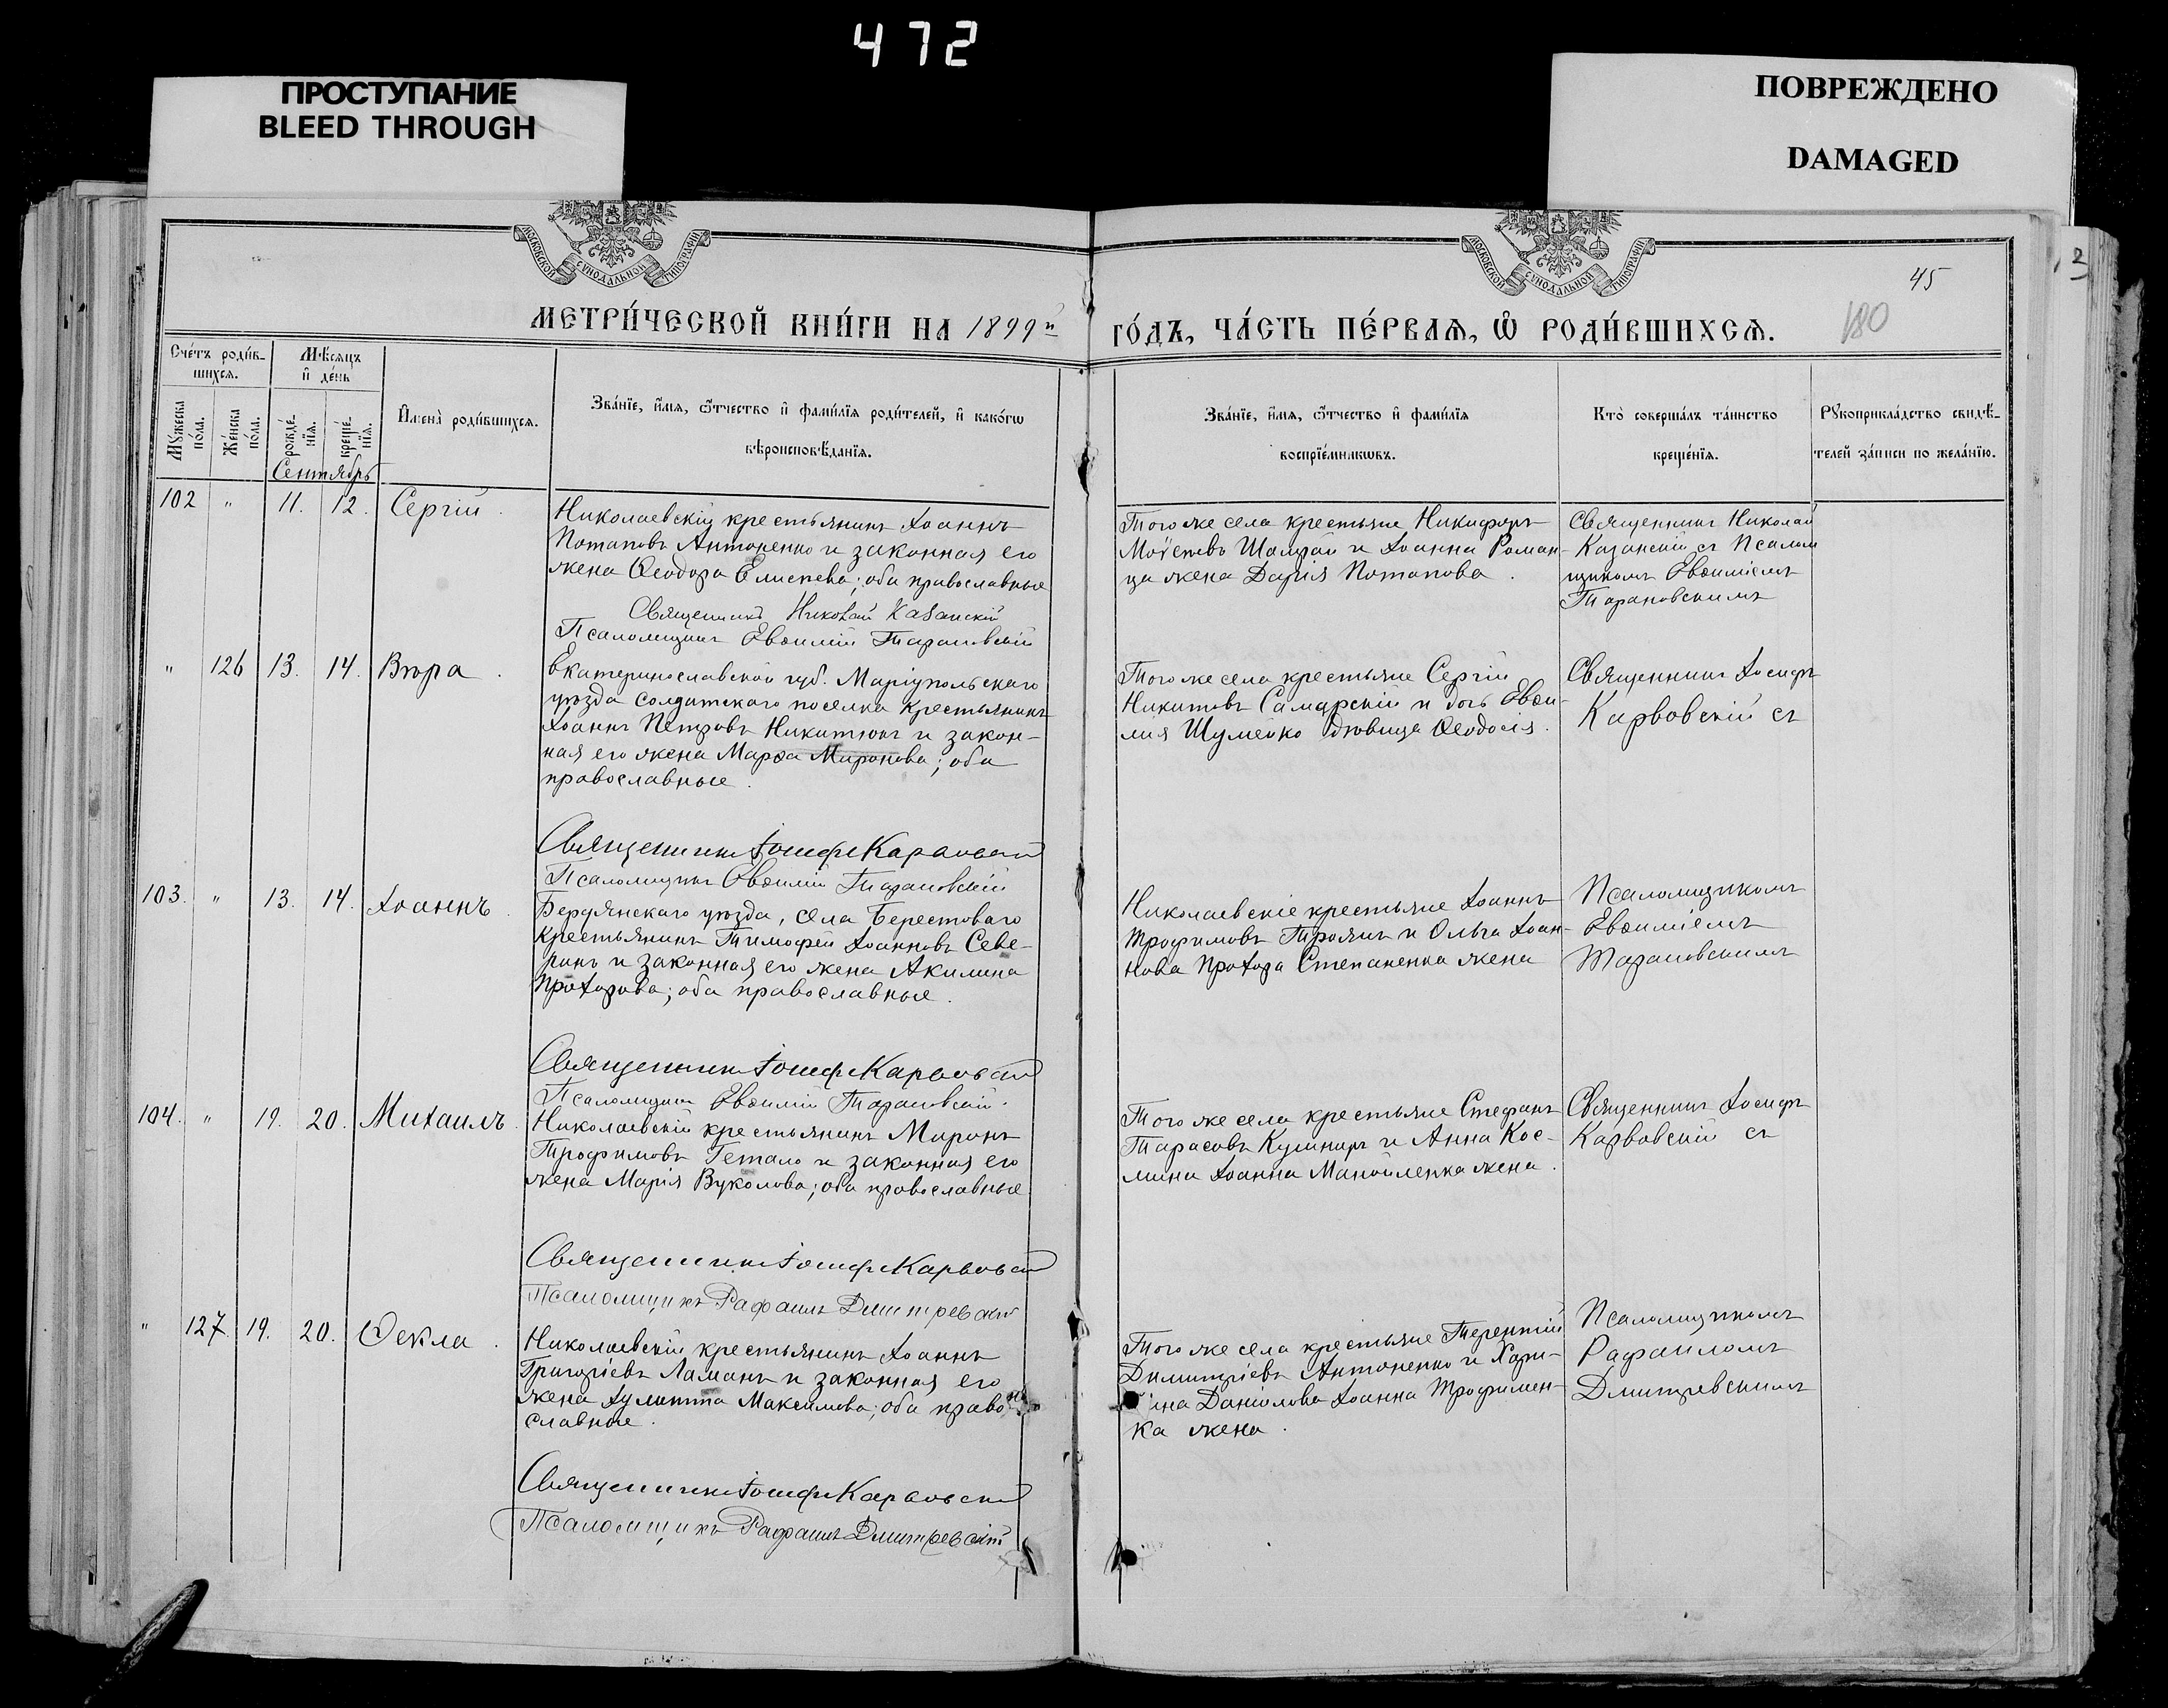 472
ПРОСТУПАНИЕ
BLEED THROUGH
ПОВРЕЖДЕНО
DAMAGED
МОСКОВСКОЙ СѴНОДАЛЬНОЙ ТИПОГРАФІИ
МОСКОВСКОЙ СѴНОДАЛЬНОЙ ТИПОГРАФІИ
45
180
МЕТРИ́ЧЕСКОЙ КНИ́ГИ НА 1899й
ГО́ДЪ, ЧА́СТЬ ПЕ́РВАѦ, Ѡ РОДИ́ВШИХСѦ.
Сче́тъ роди́в-
шихсѧ.
Мѣ́сѧцъ
и де́нь
Мꙋ́жеска по́ла.
Же́нска по́ла.
рожде́-нїѧ.
креще́-нїѧ.
Имена̀ роди́вшихсѧ.
Зва́нїе, и́мѧ, ѻ́тчество и фами́лїѧ роди́телей, и како́гѡ
вѣроисповѣ́данїѧ.
Зва́нїе, и́мѧ, ѻ́тчество и фами́лїѧ
воспрїе́мникѡвъ.
Кто̀ соверша́лъ та́инство
креще́нїѧ.
Рꙋкоприкла́дство свидѣ́-
телей за́писи по жела́нїю.
Сентябрь
102 " 11. 12. Сергій.
Николаевскій крестьянинъ Іоаннъ
Потаповъ Антоненко и законная его
жена Ѳеодора Елисеева; оба православные
Священникъ Николай Казанскій
Псаломщикъ Евѳимій Тарановскій
Тогоже села крестьяне Никифоръ
Моѵсеевъ и Іоанна Роман-
ца жена Дарія Потапова.
Священникъ Николай
Казанскій съ Псалом
щикомъ Евѳиміемъ
Тарановскимъ
" 126 13. 14. Вѣра.
Екатеринославской губ. Маріупольскаго
уѣзда солдатскаго поселка крестьянинъ
Іоаннъ Петровъ Никитюкъ и закон-
ная его жена Марѳа Миронова; оба
православные.
Священникъ Іосифъ Карвовскій
Псаломщикъ Евѳимій Тарановскій
Тогоже села крестьяне Сергій
Никитовъ Самарскій и дочь Евѳи-
мія Шумейко дѣвица Ѳеодосія.
Священникъ Іосифъ
Карвовскій съ
103. " 13. 14. Іоаннъ.
Бердянскаго уѣзда, села Берестоваго
крестьянинъ Тимофей Іоанновъ Севе-
ринъ и законная его жена Акилина
Прохорова; оба православные.
Священникъ Іосифъ Карвовскій
Псаломщикъ Евѳимій Тарановскій.
Николаевскіе крестьяне Іоаннъ
Трофимовъ Троянъ и Ольга Іоан-
нова Прохора Степаненка жена
Псаломщикомъ
Евѳиміемъ
Тарановскимъ
104. " 19. 20. Михаилъ.
Николаевскій крестьянинъ Миронъ
Трофимовъ Гетало и законная его
жена Марія Вуколова; оба православные
Священникъ Іосифъ Карвовскій
Псаломщикъ Рафаилъ Дмитревскій
Тогоже села крестьяне Стефанъ
Тарасовъ Кушниръ и Анна Кос-
мина Іоанна Манойленка жена.
Священникъ Іосифъ
Карвовскій съ
" 127. 19. 20. Ѳекла.
Николаевскій крестьянинъ Іоаннъ
Григоріевъ Ламанъ и законная его
жена Іулитта Максимова; оба право
славные.
Священникъ Іосифъ Карвовскій
Псаломщикъ Рафаилъ Дмитревскій
Тогоже села крестьяне Терентій
Димитріевъ Антоненко и Хари-
тина Даніилова Іоанна Трофимен-
ка жена.
Псаломщикомъ
Рафаиломъ
Дмитревскимъ